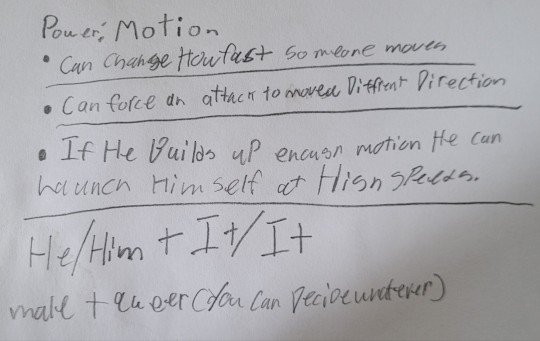 Power: Motion
• Can Change How fast Someone moves
• Can force an attack to moved Diffrent Direction
• If He Builds up enough motion He can
launch Himself at High speeds.
He/Him + It/It
male + queer (You Can Decide whatever)